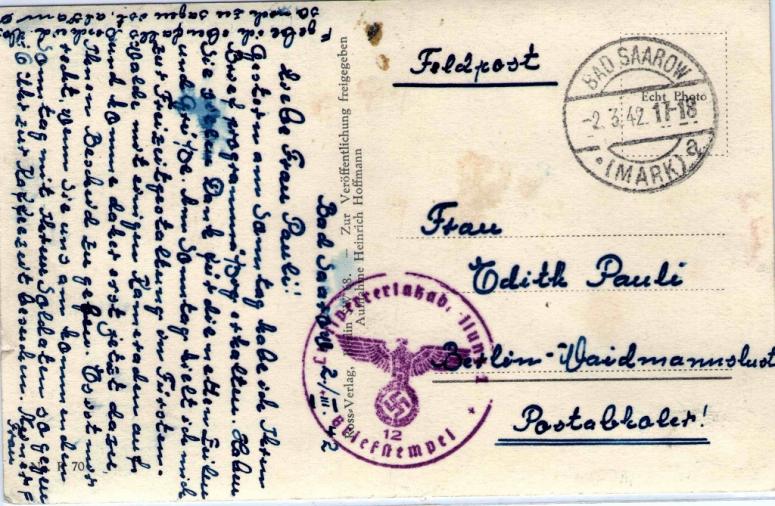 Bad Saarow 2/III. 42
Liebe Frau Pauli!
Gestern am Sonntag habe ich Ihren
Brief programmäßig erhalten. Haben
Sie Dank für die netten Zeilen
und Grüße. Am Sonntag hielt ich mich
zur Freizeitgestaltung in Fürsten-
walde mit einigen Kameraden auf
und komme daher erst jetzt dazu,
Ihnen Bescheid zu geben. Es ist mir
recht, wenn Sie uns am kommenden
Sonntag mit Ihrem Soldaten so gegen
6 Uhr zur Kaffeezeit besuchen.
Frau
70
Ross-Verlag, – Zur Veröffentlichung freigegeben
Aufnahme Heinrich Hoffmann
Feldpost
Echt Photo
BAD SAAROW
-2.3.42.17-18
(MARK) a
Frau
Edith Pauli
Berlin-Waidmannslust
Postabholer!
12
Briefstempel